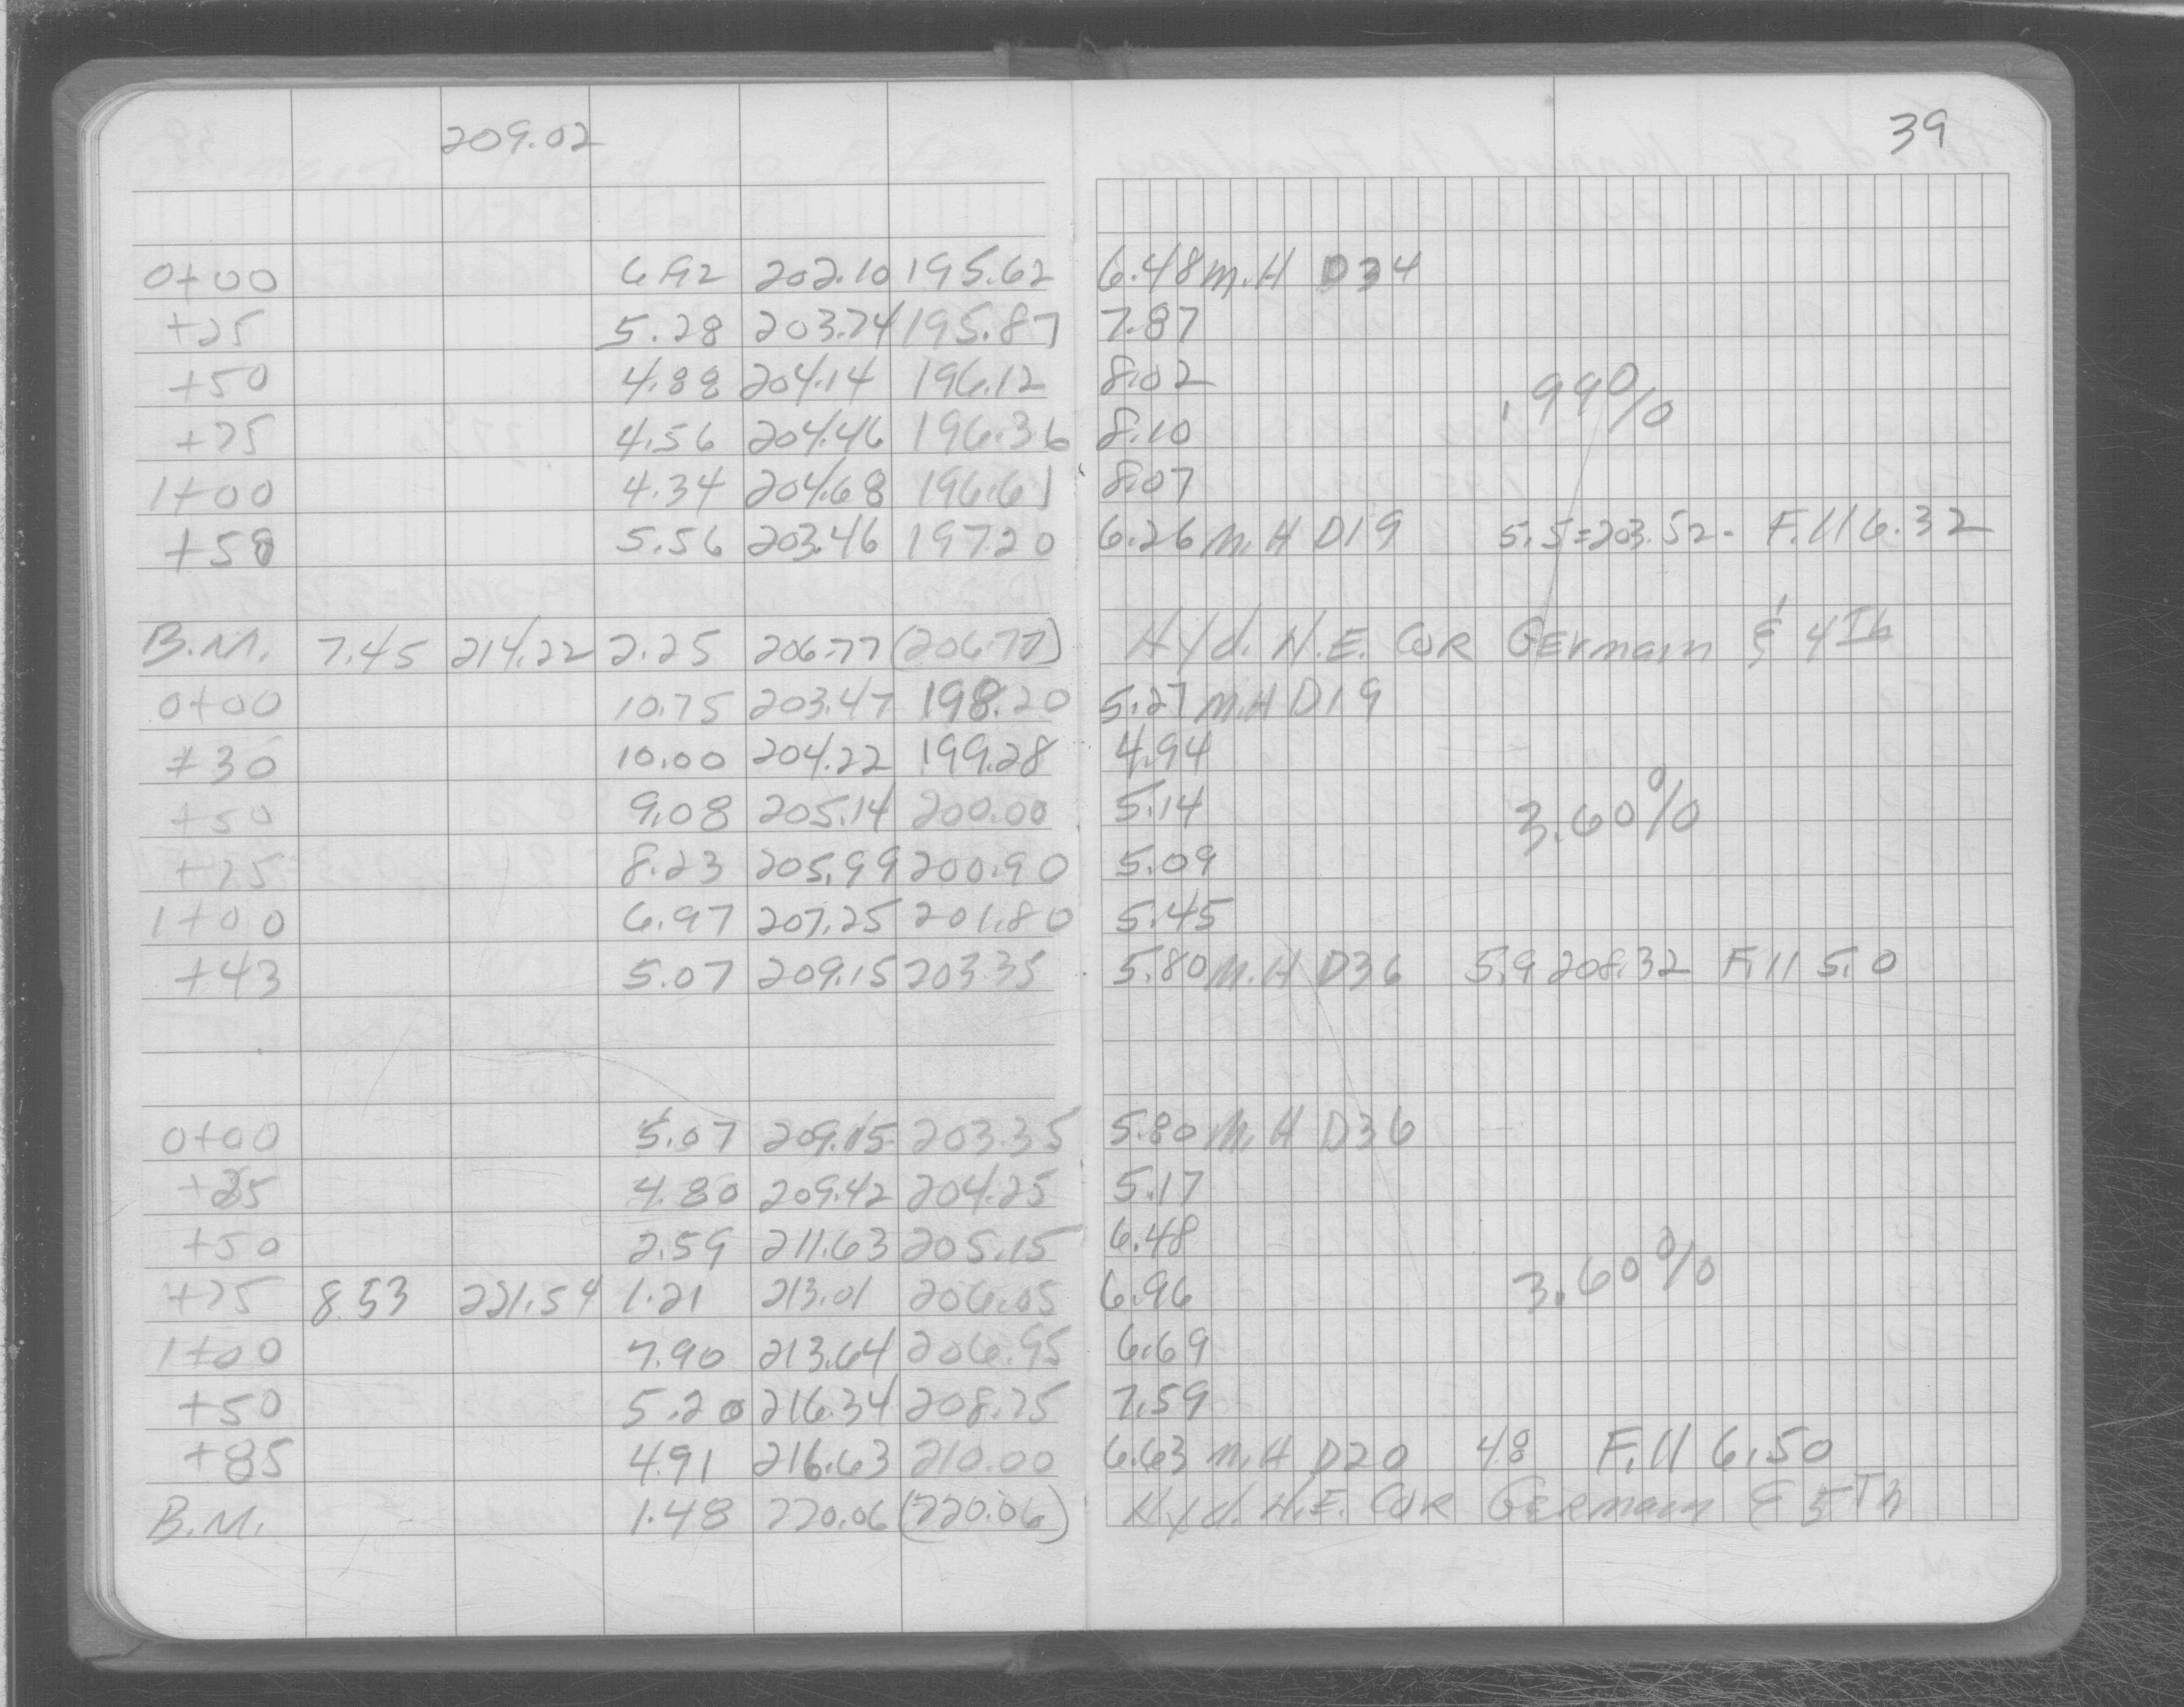 209.02 39
0+00 6.92 202.10 195.62 6.48 M.H D34
+25 5.28 203.74 195.87 7.87
+50 4.88 204.14 196.12 8.02 .99%
+75 4.56 204.46 196.36 8.10
1+00 4.34 204.68 196.61 8.07
+58 5.56 203.46 197.20 6.26 M.H D19 5.5=203.52- Fill 6.32
B.M. 7.45 214.22 2.25 206.77 (206.77) Hyd. N.E. COR GErmain & 4Th
0+00 10.75 203.47 198.20 5.27 M.H D19
+30 10.00 204.22 199.28 4.94
+50 9.08 205.14 200.00 5.14 3.60%
+75 8.23 205.99 200.90 5.09
1+00 6.97 207.25 201.80 5.45
+43 5.07 209.15 203.35 5.80 M.H D36 5.9 208.32 Fill 5.0
0+00 5.07 209.15 203.35 5.80 M.H D36
+25 4.80 209.42 204.25 5.17
+50 2.59 211.63 205.15 6.48
+75 8.53 221.54 1.21 213.01 206.05 6.96 3.60%
1+00 7.90 213.64 206.95 6.69
+50 5.20 216.34 208.75 7.59
+85 4.91 216.63 210.00 6.63 M.H D20 48 Fill 6.50
B.M. 1.48 220.06 (220.06) Hyd. N.E. COR GErmain & 5Th